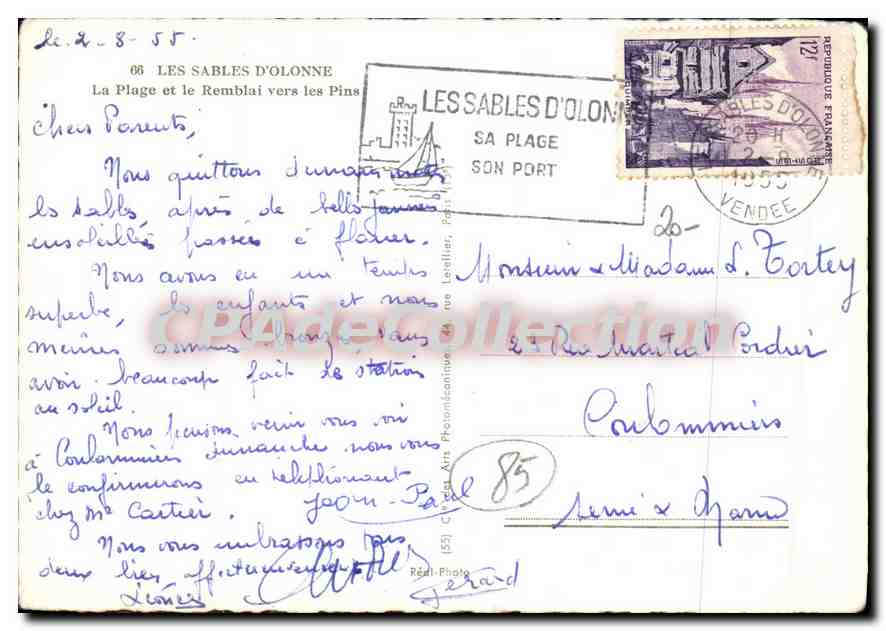 le 2-8-55-
66 LES SABLES D'OLONNE
La Plage et le Remblai vers les Pins
Chers Parents,
Nous quittons
les Sables, après de belles journées
ensoleillées passées à flaner.
Nous avons eu un temps
superbe, les enfants et nous
mêmes sommes bronzés sans
avoir beaucoup fait de station
au soleil.
Nous pensons venir vous voir
à Coulommiers dimanche nous vous
le confirmerons en téléphonant
chez Me Cartier.
Nous vous embrassons tous
deux bien affectueusement
Jean-Paul
Gérard
LES SABLES D'OLONNE
SA PLAGE
SON PORT
REPUBLIQUE FRANÇAISE
12f
LES SABLES D'OLONNE
20 H
2 - 8
1955
VENDEE
20-
Monsieur & Madame L. Tortey
23 Rue Martial Cordier
Coulommiers
Seine & Marne
85
(55) Cie des Arts Photomécaniques, 44, rue Letellier, Paris (15e)
Réal-Photo
CPAdeCollection